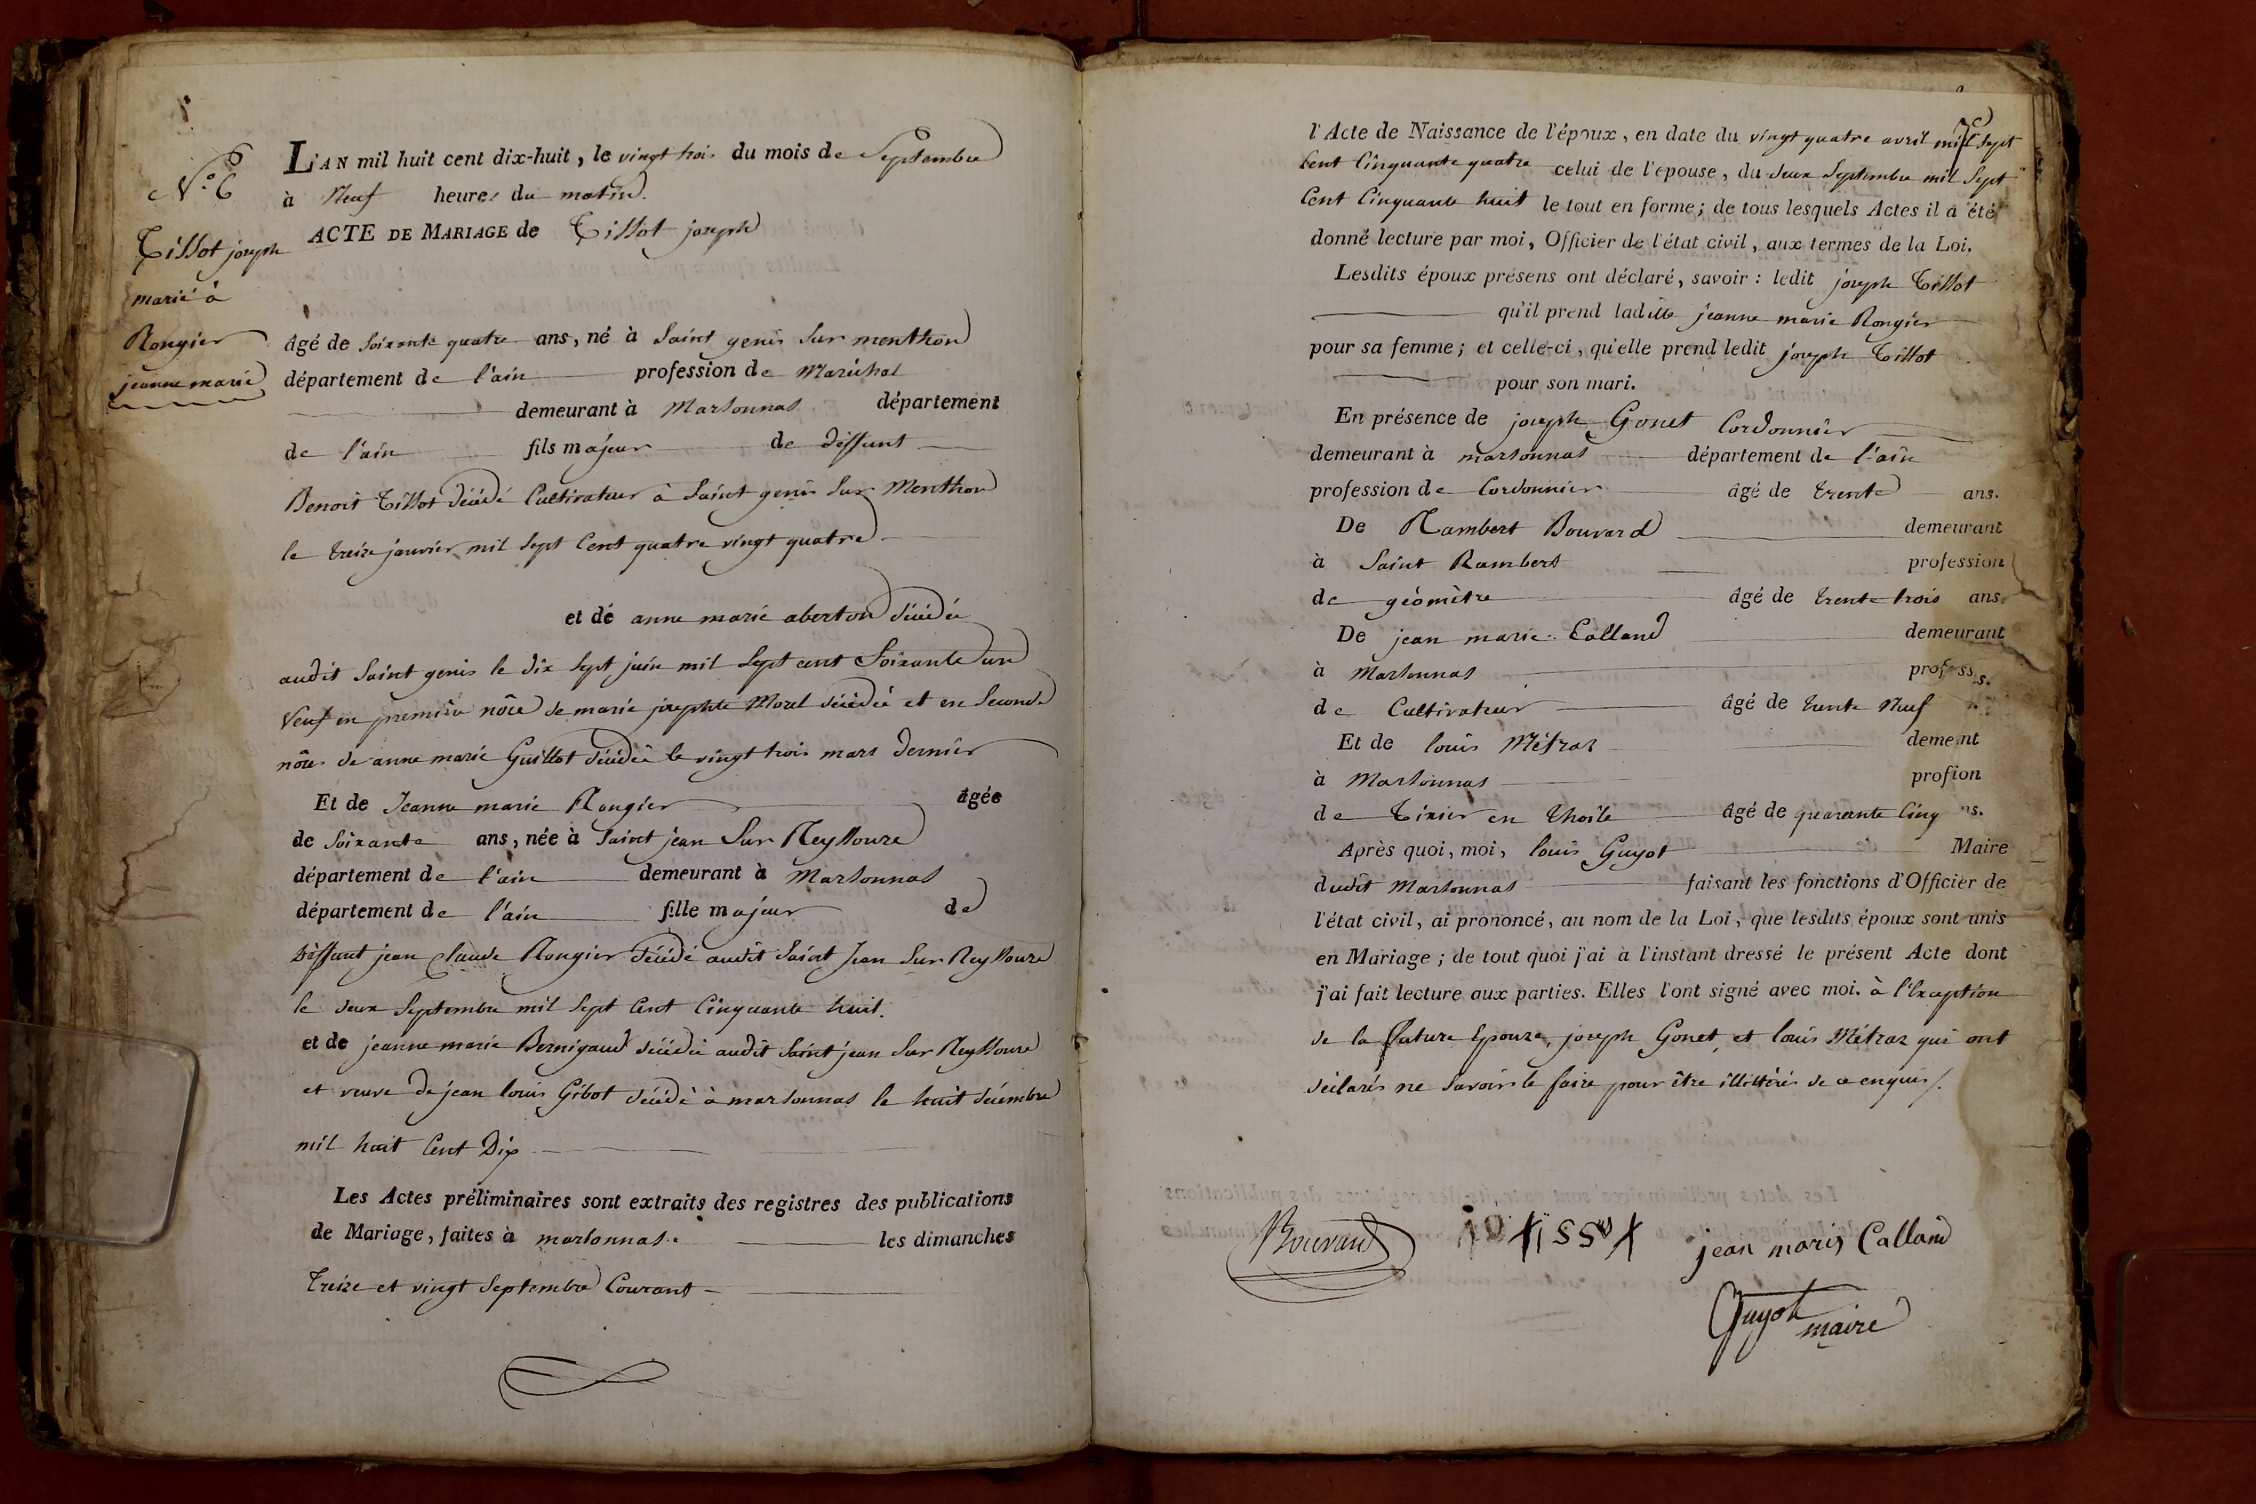 N.° 6
Tissot joseph
marié à
Rongier
jeanne marie
L'AN mil huit cent dix-huit, le vingt trois du mois de Septembre
à Neuf heures du matin.
ACTE DE MARIAGE de Tissot joseph
âgé de soixante quatre ans, né à Saint genis Sur menthon
département de l'ain profession de Maréchal
demeurant à Marsonnas département
de l'ain fils majeur de deffunt
Benoit Tissot décédé Cultivateur à Saint genis Sur Menthon
le treize janvier mil sept Cent quatre vingt quatre
et de anne marie aberton décédée
audit Saint genis le dix sept juin mil sept cent Soixante un
Veuf en première nôce de marie josephte Morel décédée et en Seconde
nôce de anne marie Guillot décédée le vingt trois mars dernier
Et de Jeanne marie Rongier âgée
de soixante ans, née à Saint jean Sur Reyssouze
département de l'ain demeurant à Marsonnas
département de l'ain fille majeur de
deffunt jean Claude Rongier décédé audit Saint Jean Sur Reyssouze
le deux Septembre mil sept Cent Cinquante huit.
et de jeanne marie Bernigaud décédée audit Saint jean Sur Reyssouze
et veuve de jean louis Gibot décédé à marsonnas le huit décembre
mil huit Cent Dix
Les Actes préliminaires sont extraits des registres des publications
de Mariage, faites à marsonnas. les dimanches
treize et vingt Septembre Courant
l'Acte de Naissance de l'époux, en date du vingt quatre avril mil sept
Cent Cinquante quatre celui de l'épouse, du deux Septembre mil Sept
Cent Cinquante huit le tout en forme; de tous lesquels Actes il a été
donné lecture par moi, Officier de l'état civil, aux termes de la Loi.
Lesdits époux présens ont déclaré, savoir : ledit joseph Tissot
qu'il prend ladite jeanne marie Rongier
pour sa femme; et celle-ci, qu'elle prend ledit joseph Tissot
pour son mari.
En présence de joseph Gonet Cordonnier
demeurant à marsonnas département de l'ain
profession de Cordonnier âgé de trente ans.
De Rambert Bouvard demeurant
à Saint Rambert profession
de géomètre âgé de trente trois ans.
De jean marie Calland demeurant
à Marsonnas
de Cultivateur âgé de trente Neuf
Et de louis Métraz
à Marsonnas
de Tixier en thoile âgé de quarante Cinq
Après quoi, moi, louis Guyot Maire
dudit Marsonnas faisant les fonctions d'Officier de
l'état civil, ai prononcé, au nom de la Loi, que lesdits époux sont unis
en Mariage; de tout quoi j'ai à l'instant dressé le présent Acte dont
j'ai fait lecture aux parties. Elles l'ont signé avec moi. à l'Exception
de la future Epouze, joseph Gonet, et louis Métraz qui ont
déclarés ne Savoir le faire pour être illittérés de ce enquis.
Bouvard jo tissot jean marie Calland
Guyot
maire